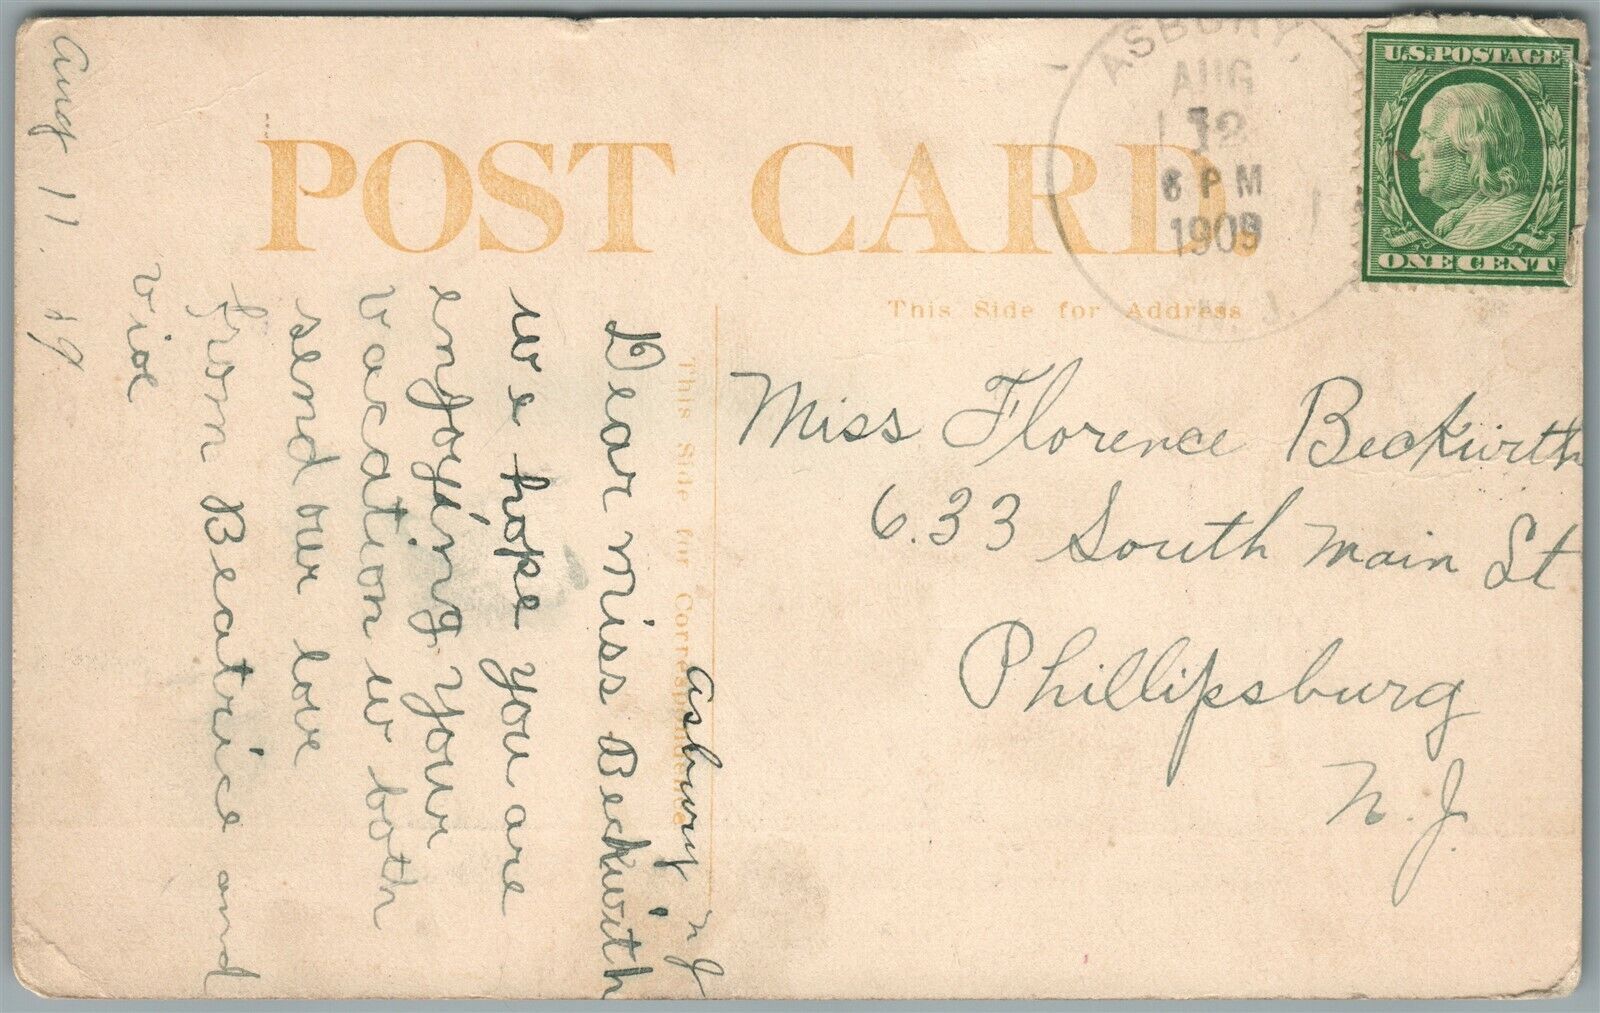 POST CARD.
This Side for Address
This Side for Correspondence
ASBURY,
AUG
12
6 PM
1909
N. J.
U.S. POSTAGE
ONE CENT
Miss Florence Beckwith
633 South Main St
Phillipsburg
N. J.
Asbury N J
Dear Miss Beckwith
we hope you are
enjoying your
vacation w both
send our love
from Beatrice and
Aug 11.